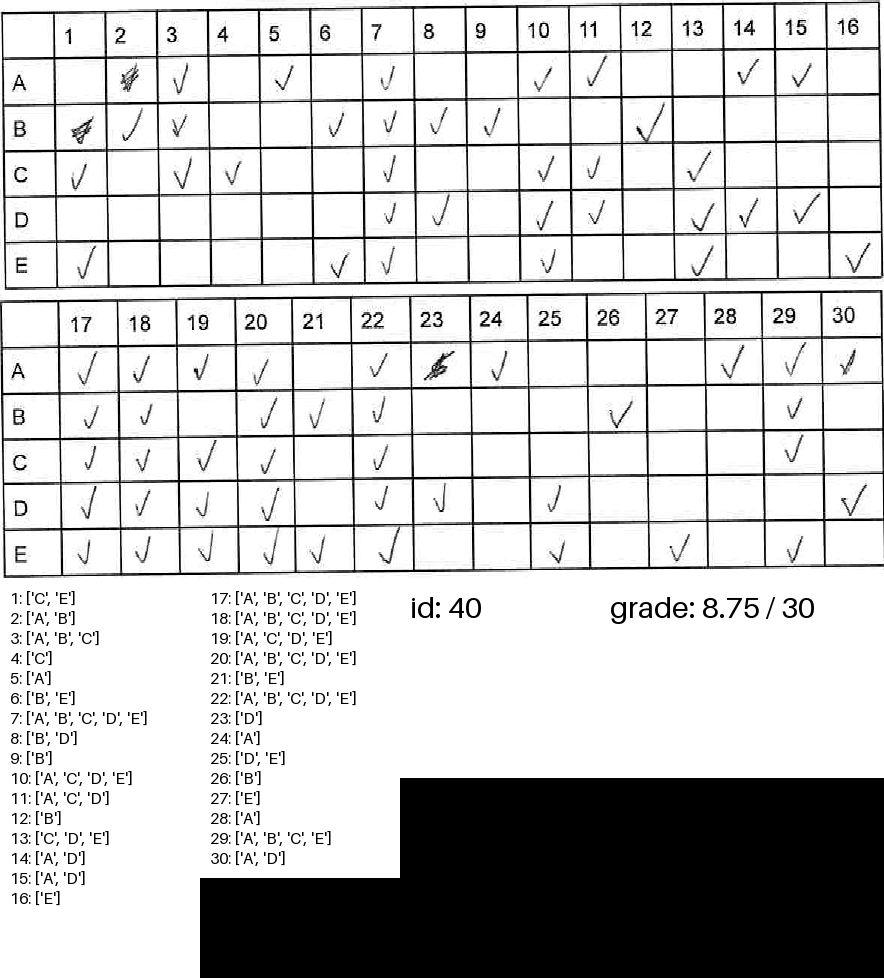 1 2 3 4 5 6 7 8 9 10 11 12 13 14 15 16
A ✓ ✓ ✓ ✓ ✓ ✓ ✓
B ✓ ✓ ✓ ✓ ✓ ✓ ✓
C ✓ ✓ ✓ ✓ ✓ ✓ ✓
D ✓ ✓ ✓ ✓ ✓ ✓ ✓
E ✓ ✓ ✓ ✓ ✓ ✓
17 18 19 20 21 22 23 24 25 26 27 28 29 30
A ✓ ✓ ✓ ✓ ✓ ✓ ✓ ✓ ✓
B ✓ ✓ ✓ ✓ ✓ ✓ ✓
C ✓ ✓ ✓ ✓ ✓ ✓
D ✓ ✓ ✓ ✓ ✓ ✓ ✓ ✓
E ✓ ✓ ✓ ✓ ✓ ✓ ✓ ✓ ✓
1: ['C', 'E']
2: ['A', 'B']
3: ['A', 'B', 'C']
4: ['C']
5: ['A']
6: ['B', 'E']
7: ['A', 'B', 'C', 'D', 'E']
8: ['B', 'D']
9: ['B']
10: ['A', 'C', 'D', 'E']
11: ['A', 'C', 'D']
12: ['B']
13: ['C', 'D', 'E']
14: ['A', 'D']
15: ['A', 'D']
16: ['E']
17: ['A', 'B', 'C', 'D', 'E']
18: ['A', 'B', 'C', 'D', 'E']
19: ['A', 'C', 'D', 'E']
20: ['A', 'B', 'C', 'D', 'E']
21: ['B', 'E']
22: ['A', 'B', 'C', 'D', 'E']
23: ['D']
24: ['A']
25: ['D', 'E']
26: ['B']
27: ['E']
28: ['A']
29: ['A', 'B', 'C', 'E']
30: ['A', 'D']
id: 40
grade: 8.75 / 30